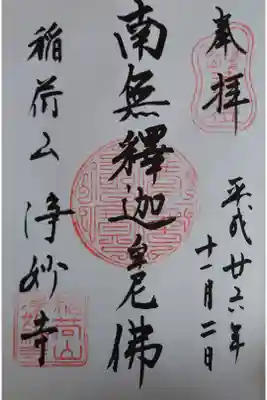 奉拝
平成廿六年
十一月二日
南無釋迦牟尼佛
稲荷山 浄妙寺